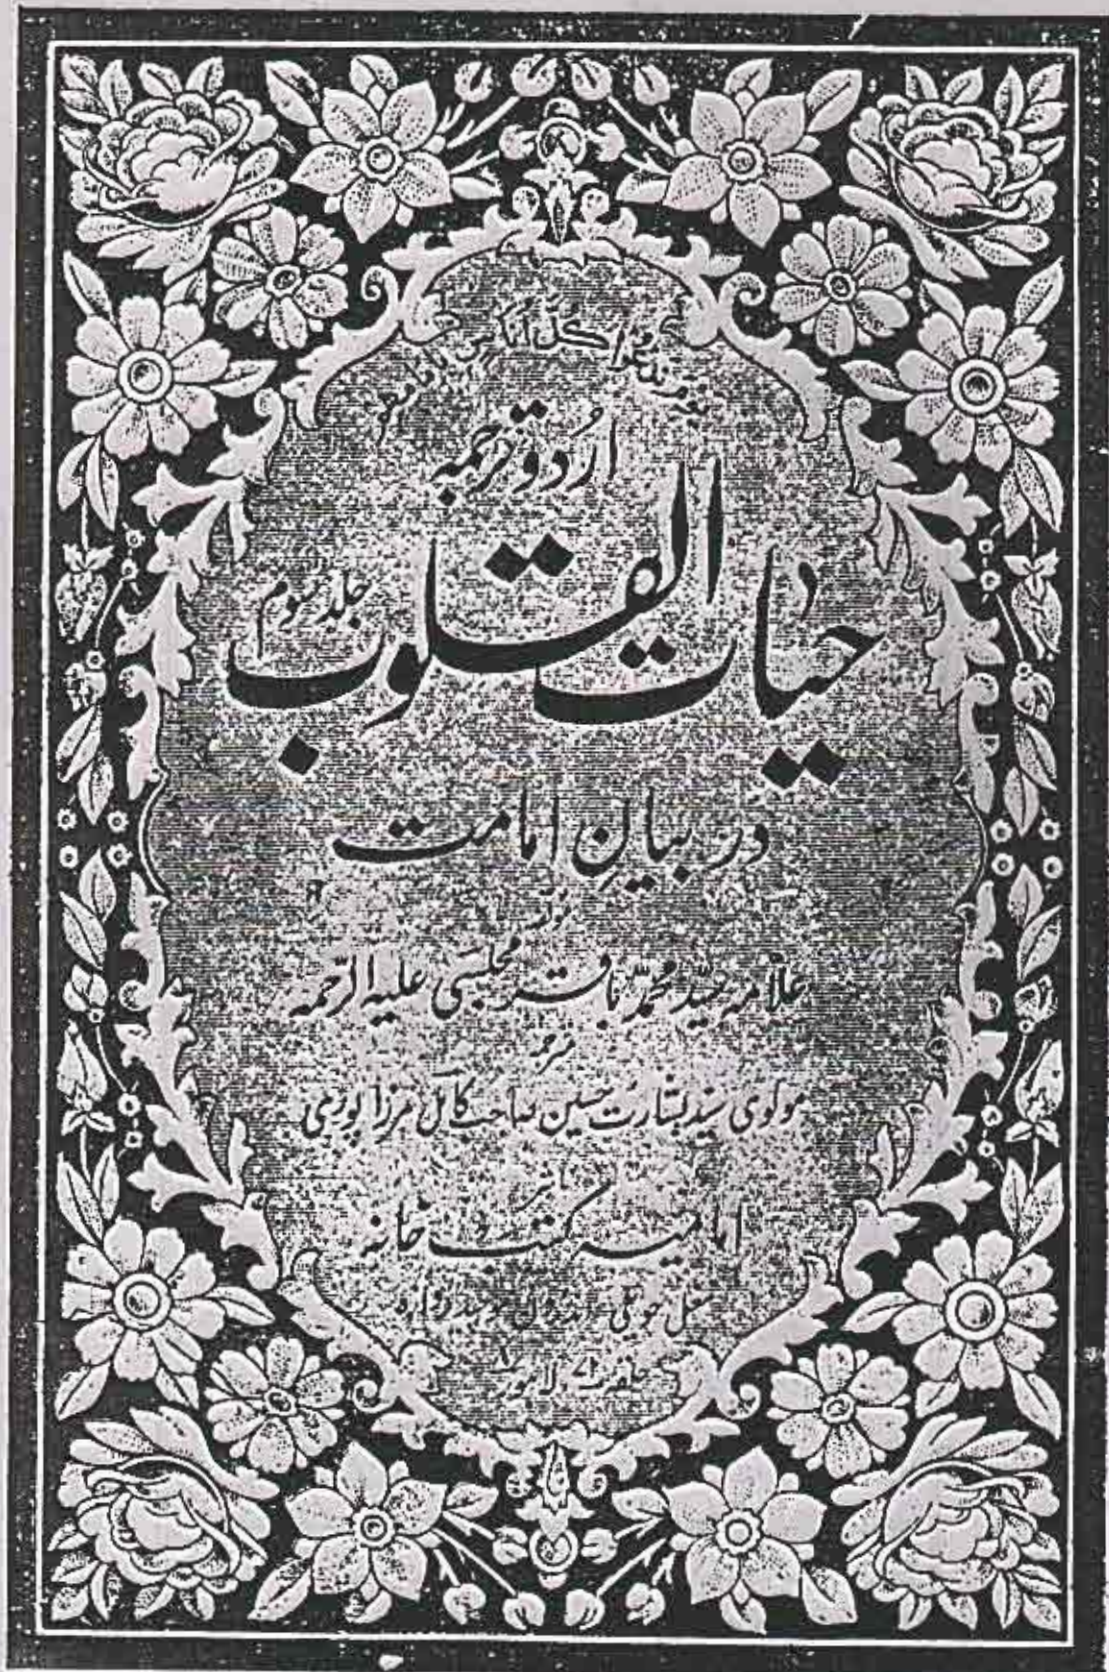 اردو ترجمہ
حیات القلوب
جلد سوم
در بیانِ امامت
مؤلفہ
علامہ سید محمد باقر مجلسی علیہ الرحمہ
مترجمہ
مولوی سید بشارت حسین صاحب کامل مرزا پوری
ناشر
امامیہ کتب خانہ
مغل حویلی اندرون موچیدروازہ
حلقہ لاہور